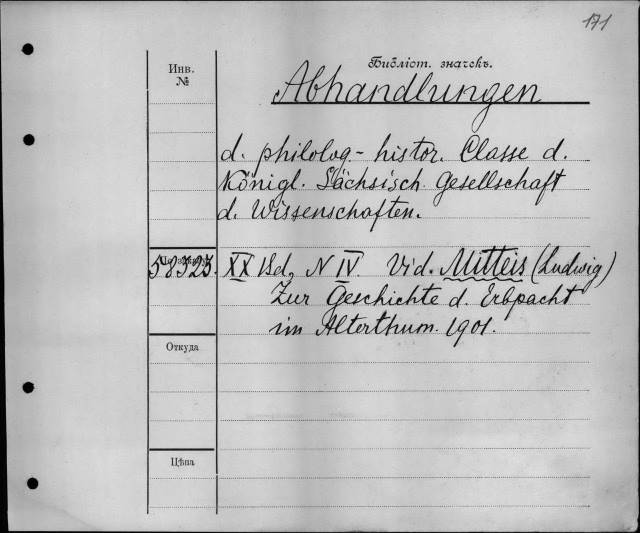 171
Инв.
№
Библіот. значекъ.
Abhandlungen
d. philolog-histor. Classe d.
Königl. Sächsisch. Gesellschaft
d. Wissenschaften.
58323. XX Bd, N IV. Vid. Mitteis (Ludwig)
Zur Geschichte d. Erbpacht
im Alterthum. 1901.
Откуда
Цѣна